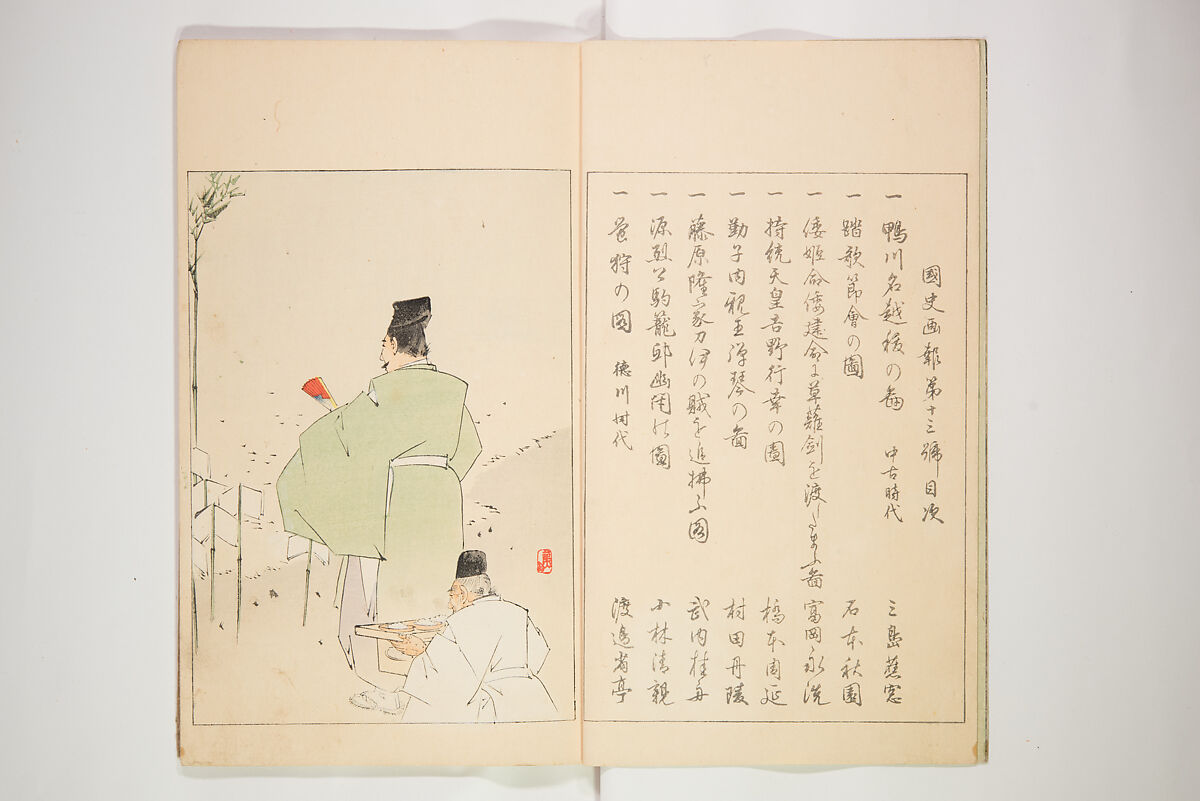 國史画報第十三號目次
一 鴨川名越祓の圖 中古時代 三島蕉窓
一 踏歌節會の圖 石本秋園
一 倭姫命倭建命に草薙剣を渡したまふ圖 富岡永洗
一 持統天皇吉野行幸の圖 橋本周延
一 勤子内親王弾琴の圖 村田丹陵
一 藤原隆家刀伊の賊を追拂ふ図 武内桂舟
一 源烈公駒籠邸幽閉の圖 小林清親
一 蛍狩の図 徳川時代 渡邉省亭